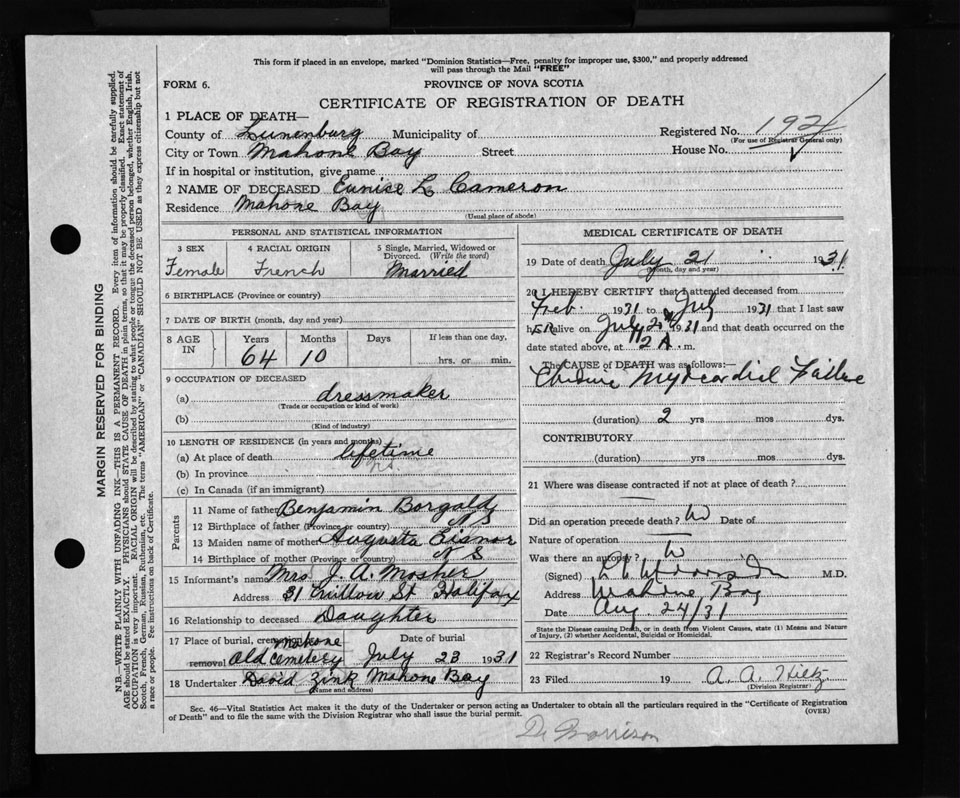 This form if placed in an envelope, marked "Dominion Statistics—Free, penalty for improper use, $300," and properly addressed
will pass through the Mail "FREE"
FORM 6. PROVINCE OF NOVA SCOTIA
CERTIFICATE OF REGISTRATION OF DEATH
1 PLACE OF DEATH—
County of Lunenburg Municipality of Registered No. 192
(For use of Registrar General only)
City or Town Mahone Bay Street House No.
If in hospital or institution, give name
2 NAME OF DECEASED Eunice L Cameron
Residence Mahone Bay
(Usual place of abode)
PERSONAL AND STATISTICAL INFORMATION
3 SEX 4 RACIAL ORIGIN 5 Single, Married, Widowed or
Divorced. (Write the word)
Female French Married
6 BIRTHPLACE (Province or country)
7 DATE OF BIRTH (month, day and year)
8 AGE IN Years Months Days If less than one day,
64 10 hrs. or min.
9 OCCUPATION OF DECEASED
(a) dressmaker
(Trade or occupation or kind of work)
(b)
(Kind of industry)
10 LENGTH OF RESIDENCE (in years and months)
(a) At place of death lifetime
(b) In province
(c) In Canada (if an immigrant)
Parents
11 Name of father Benjamin Borgald
12 Birthplace of father (Province or country) N S
13 Maiden name of mother Augusta Eisnor
14 Birthplace of mother (Province or country) N S
15 Informant's name Mrs. J. A. Mosher
Address 31 St Halifax
16 Relationship to deceased Daughter
17 Place of burial, Mahone Date of burial
removal Old Cemetery July 23 1931
18 Undertaker David Zink Mahone Bay
(Name and address)
MEDICAL CERTIFICATE OF DEATH
19 Date of death July 21 1931
(Month, day and year)
20 I HEREBY CERTIFY that I attended deceased from
Feb. 1931 to July 1931 that I last saw
h ER alive on July 20 1931 and that death occurred on the
date stated above, at 12 A. m.
The CAUSE of DEATH was as follows:
Myocardial Failure
(duration) 2 yrs mos dys.
CONTRIBUTORY
(duration) yrs mos dys.
21 Where was disease contracted if not at place of death?
Did an operation precede death? Date of
Nature of operation
Was there an autopsy?
(Signed) M.D.
Address Mahone Bay
Date Aug. 24/31
State the Disease causing Death, or in Death from Violent Causes, state (1) Means and Nature
of Injury, (2) whether Accidental, Suicidal or Homicidal.
22 Registrar's Record Number
23 Filed 19 A. A.
(Division Registrar)
Sec. 46—Vital Statistics Act makes it the duty of the Undertaker or person acting as Undertaker to obtain all the particulars required in the "Certificate of Registration
of Death" and to file the same with the Division Registrar who shall issue the burial permit. (OVER)
MARGIN RESERVED FOR BINDING
N.B.—WRITE PLAINLY WITH UNFADING INK—THIS IS A PERMANENT RECORD. Every item of information should be carefully supplied.
AGE should be stated EXACTLY. PHYSICIANS should STATE CAUSE OF DEATH in plain terms, so that it may be properly classified. Exact statement of
OCCUPATION is very important. RACIAL ORIGIN will be described by stating to what people or tongue the deceased person belonged, whether English, Irish,
Scotch, French, German, Russian, Ruthenian, etc. The terms "AMERICAN" or "CANADIAN" SHOULD NOT BE USED as they express citizenship but not
a race or people. See instructions on back of Certificate.